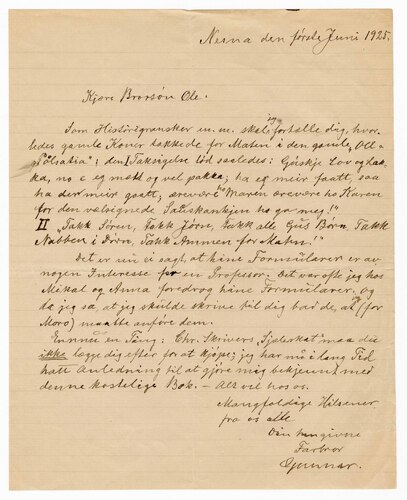 Nesna den første Juni 1925.
Kjære Brorsøn Ole.
Som Historiegransker m.m. skal jeg fortælle dig, hvor-
ledes gamle Koner takkede for Maten i den gamle, Oll-
"Pølsatia": den I Taksigelse lød saaledes: Guskje Lov og tak-
ka, no e eg mett og vel pakka; ha eg meir faatt, saa
ha der meir gaatt; ærevere Maren ærevere ho Karen
for den velsignede ho ga mej!"
II "Takk Søren, takk Jørn, takk alle Gus Børn, Takk
Nabben i Døren, Takk Ammen for Matn!"
Det er nu ei sagt, at hine Formularer er av
nogen Interesse for en Professor. Det var ofte jeg hos
Mikal og Anna foredrog hine Formularer, og
da jeg sa, at jeg skulde skrive til dig bad de, at jeg (for
Moro) maatte anføre dem.
Ennu en Ting: Chr. Skrivers Sjeleskat maa du
ikke lægge dig efter for at kjøpe; jeg har nu i lang Tid
hatt Anledning til at gjøre mig bekjent med
denne kostelige Bok. — Alt vel hos os.
Mangfoldige Hilsener
fra os alle
Din hengivne
Farbror
Gunnar.